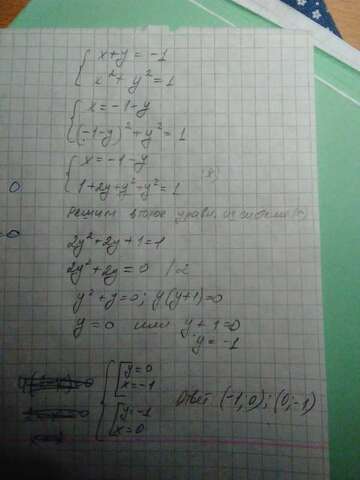 x+y=-1
x²+y²=1
x=-1-y
(-1-y)²+y²=1
x=-1-y
1+2y+y²+y²=1
решим второе уравн. из системы
2y²+2y+1=1
2y²+2y=0 /2
y²+y=0; y(y+1)=0
y=0 или y+1=0
y=-1
y=0
x=-1
y=-1
x=0
Ответ (-1;0);(0;-1)